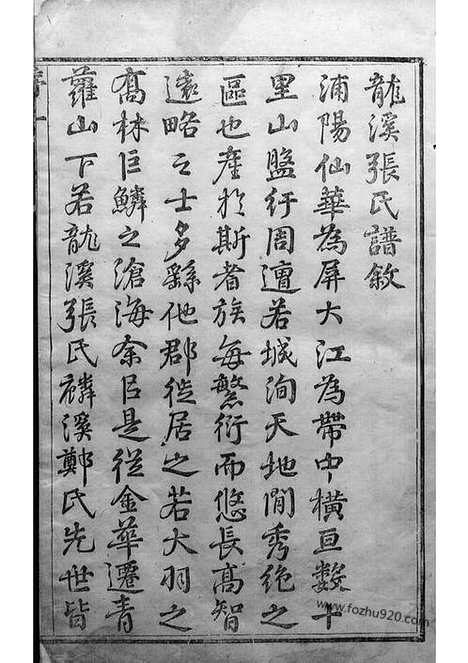 龍溪張氏譜敘
浦陽仙華為屏大江為帶中橫亘數十
里山盤紆周遭若城洵天地間秀絕之
區也產於斯者族每繁衍而悠長高智
遠略之士多繇他郡徙居之若大羽之
喬林巨鱗之滄海余巨是從金華遷青
蘿山下若龍溪張氏麟溪鄭氏先世皆
www.fozhu920.com